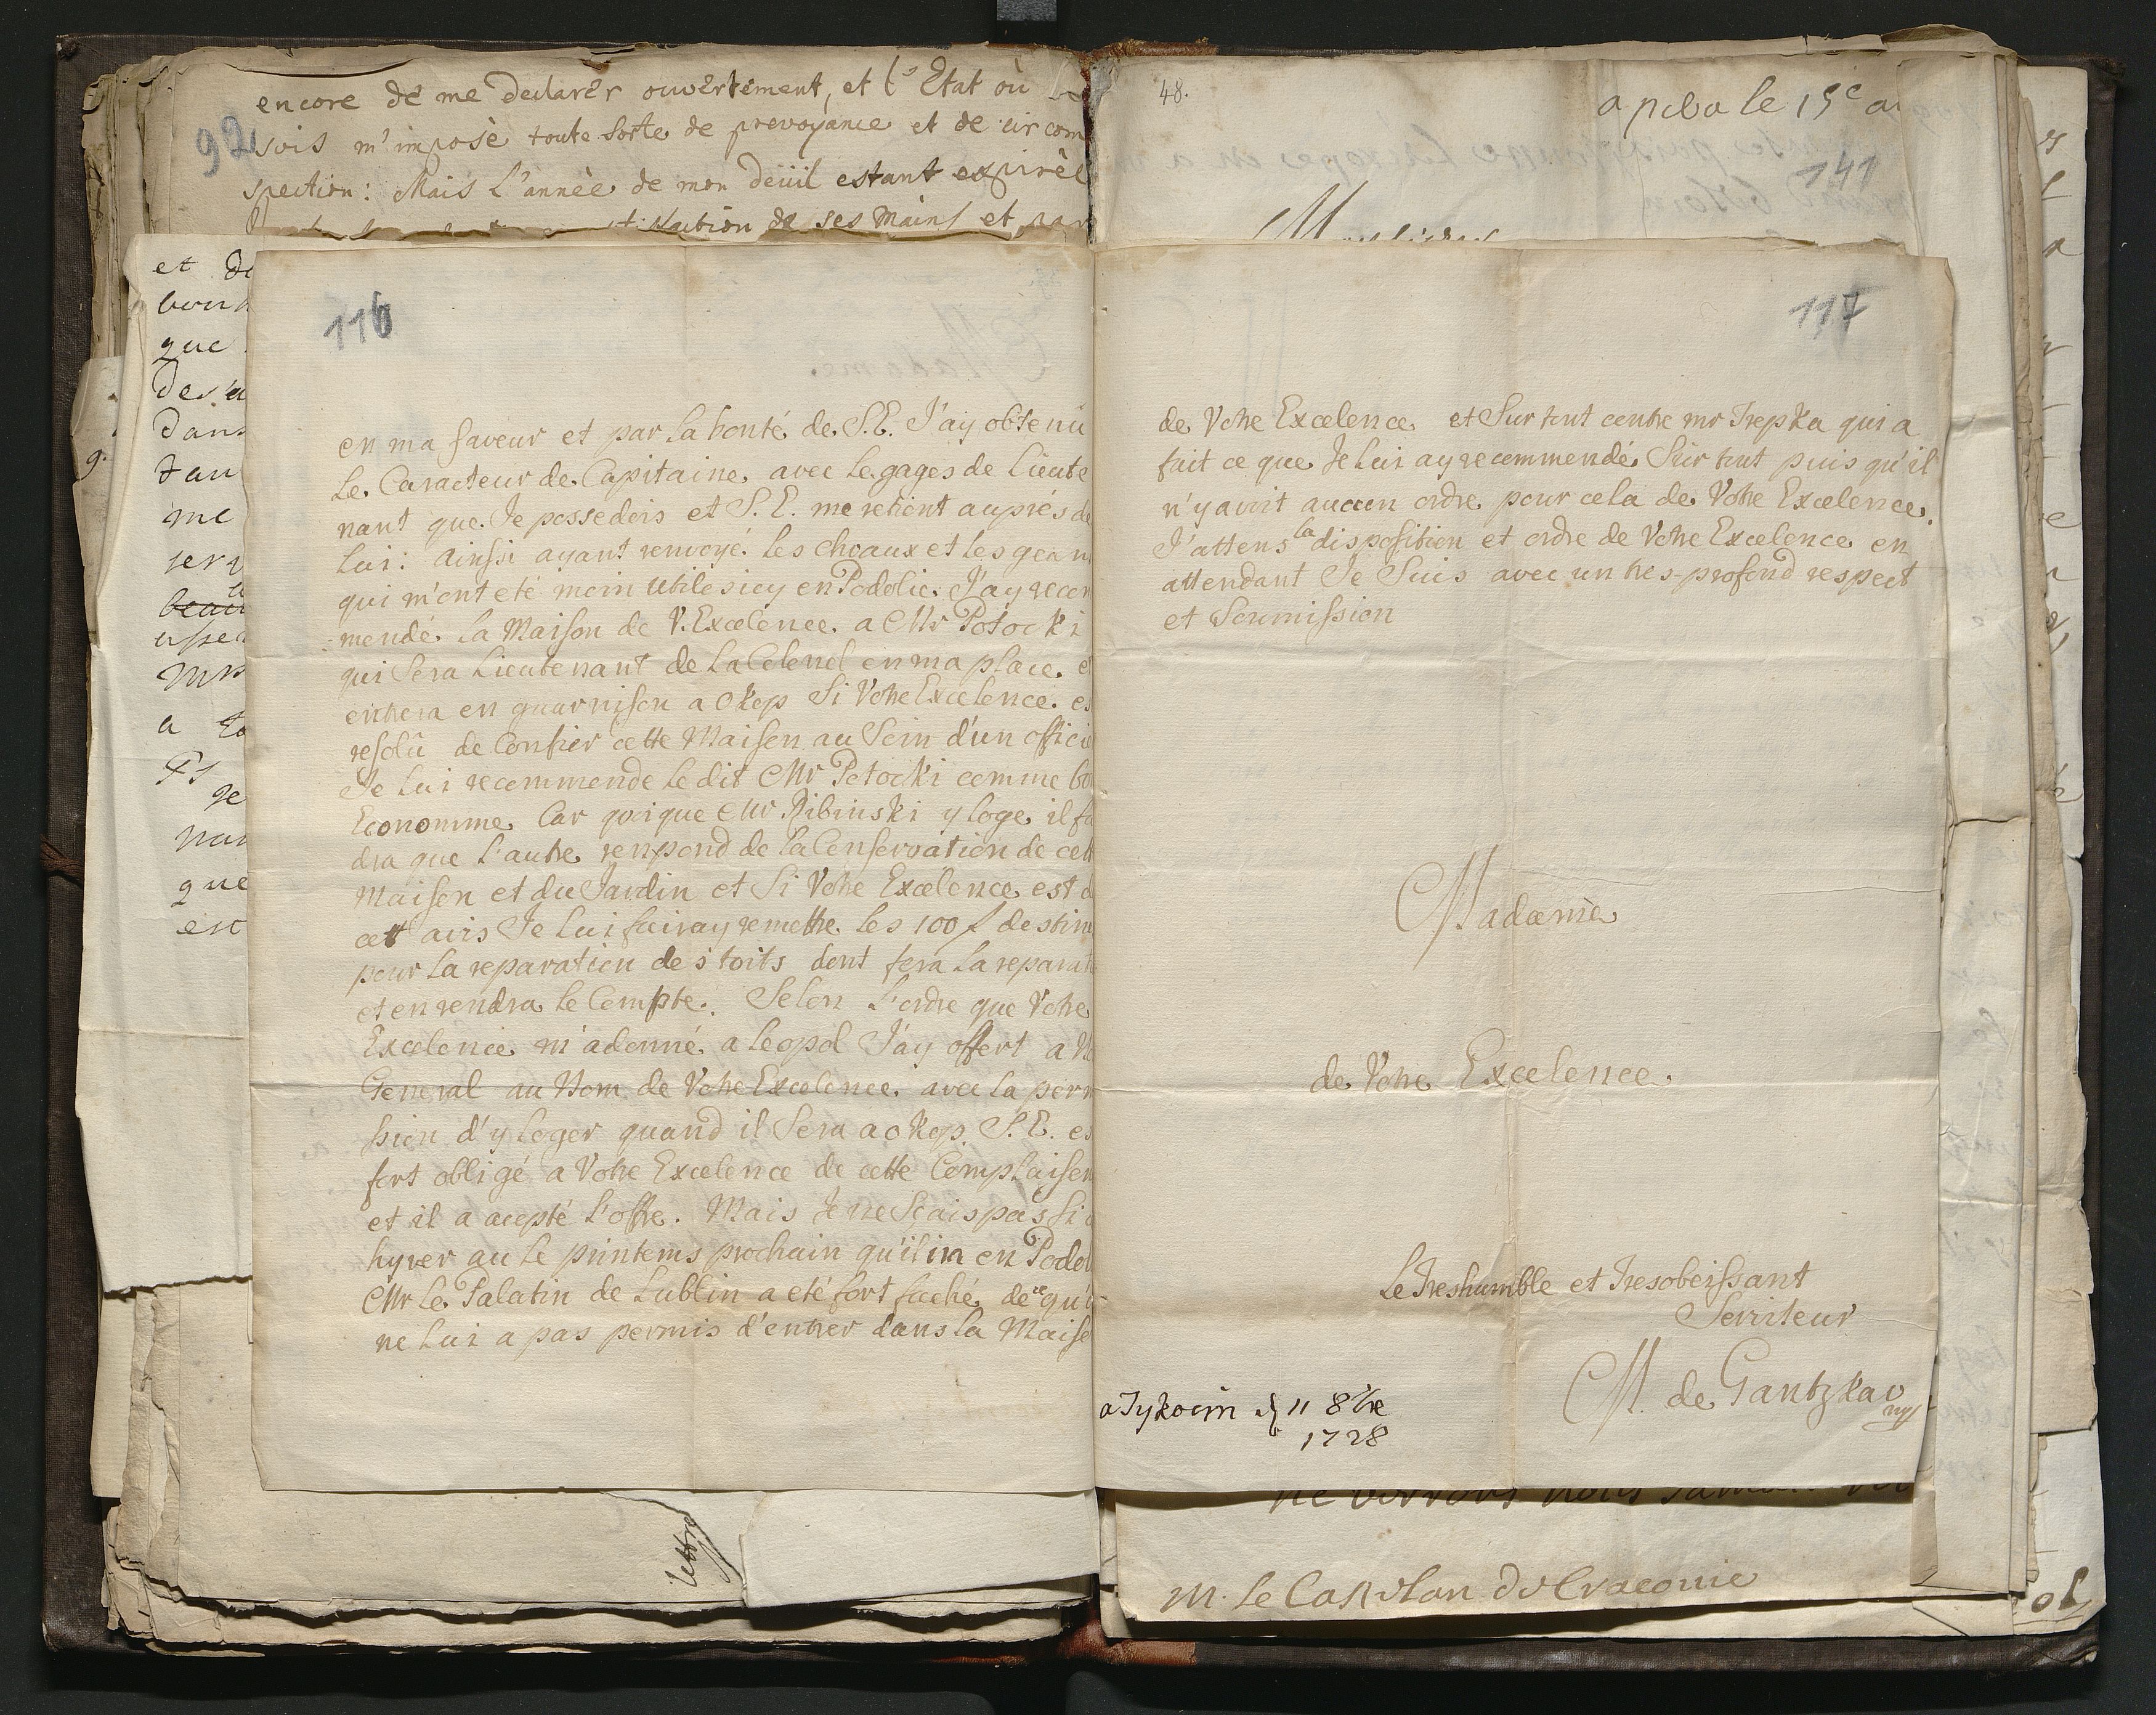 encore de me declarer ouvertement, et l'Etat où
92
suis m'impose toute sorte de prevoyance et de circom
spection: Mais l'année de mon deüil estant expirée
de ses mains et par
et de
que
dans
me
a
que
est
116
en ma faveur et par la bonté de S.E. J'ay obtenû
Le Caracteur de Capitaine avec Le gages de Lieute
nant que Je possedois et S.E. me retient auprés de
Lui: ainsi ayant renvoyé Les chvaux et les gean
qui m'ont eté moin utiles icy en Podolie. J'ay recom
mendé La Maison de V. Excelence a Mr Potocki
qui Sera Lieutenant de La Colenel en ma place. e
entrera en guarnison a Okop Si Votre Excelence es
resolû de Confier cette Maison au Sein d'un offici
Je Lui recommende Le dit Mr Potocki comme bo
Economme Car qoique Mr Ribinski y loge il fa
dra que L'autre renpond de La Conservation de cett
Maison et du Jardin et Si Votre Excelence est d
cett avis Je Lui fairay remettre Les 100 f destin
pour La reparation de s toits dont fera La reparat
et en rendra Le Compte. Selon L'ordre que Votre
Excelence m'adonné a Leopol J'ay offert a M
General au Nom de Votre Excelence avec La perm
sion d'y Loger quand il Sera a Okop. S.E. es
fort obligé a Votre Excelence de cette Complaisen
et il a acepté L'offre. Mais Je ne Scais pas Si c
hyver au Le printems prochain qu'il ira en Podol
Mr Le Palatin de Lublin a eté fort faché de ce qu'
ne Lui a pas permis d'entrer dans La Maise
lettre
48.
a le 15e a
141
117
de Votre Excelence et Sur tout contre mr Trepka qui a
fait ce que Je Lui ay recommendé Sur tout puis qu'il
n'y avoit aucun ordre pour cela de Votre Excelence.
J'attens la disposition et ordre de Votre Excelence en
attendant Je Suis avec un tres-profond respect
et Soumission
Madame
de Votre Excelence.
Le Treshumble et Tresobeissant
Serviteur
M. de Gantzkaw
a Tykocin d 11 8bre
1728
M. le Castelan de Cracovie